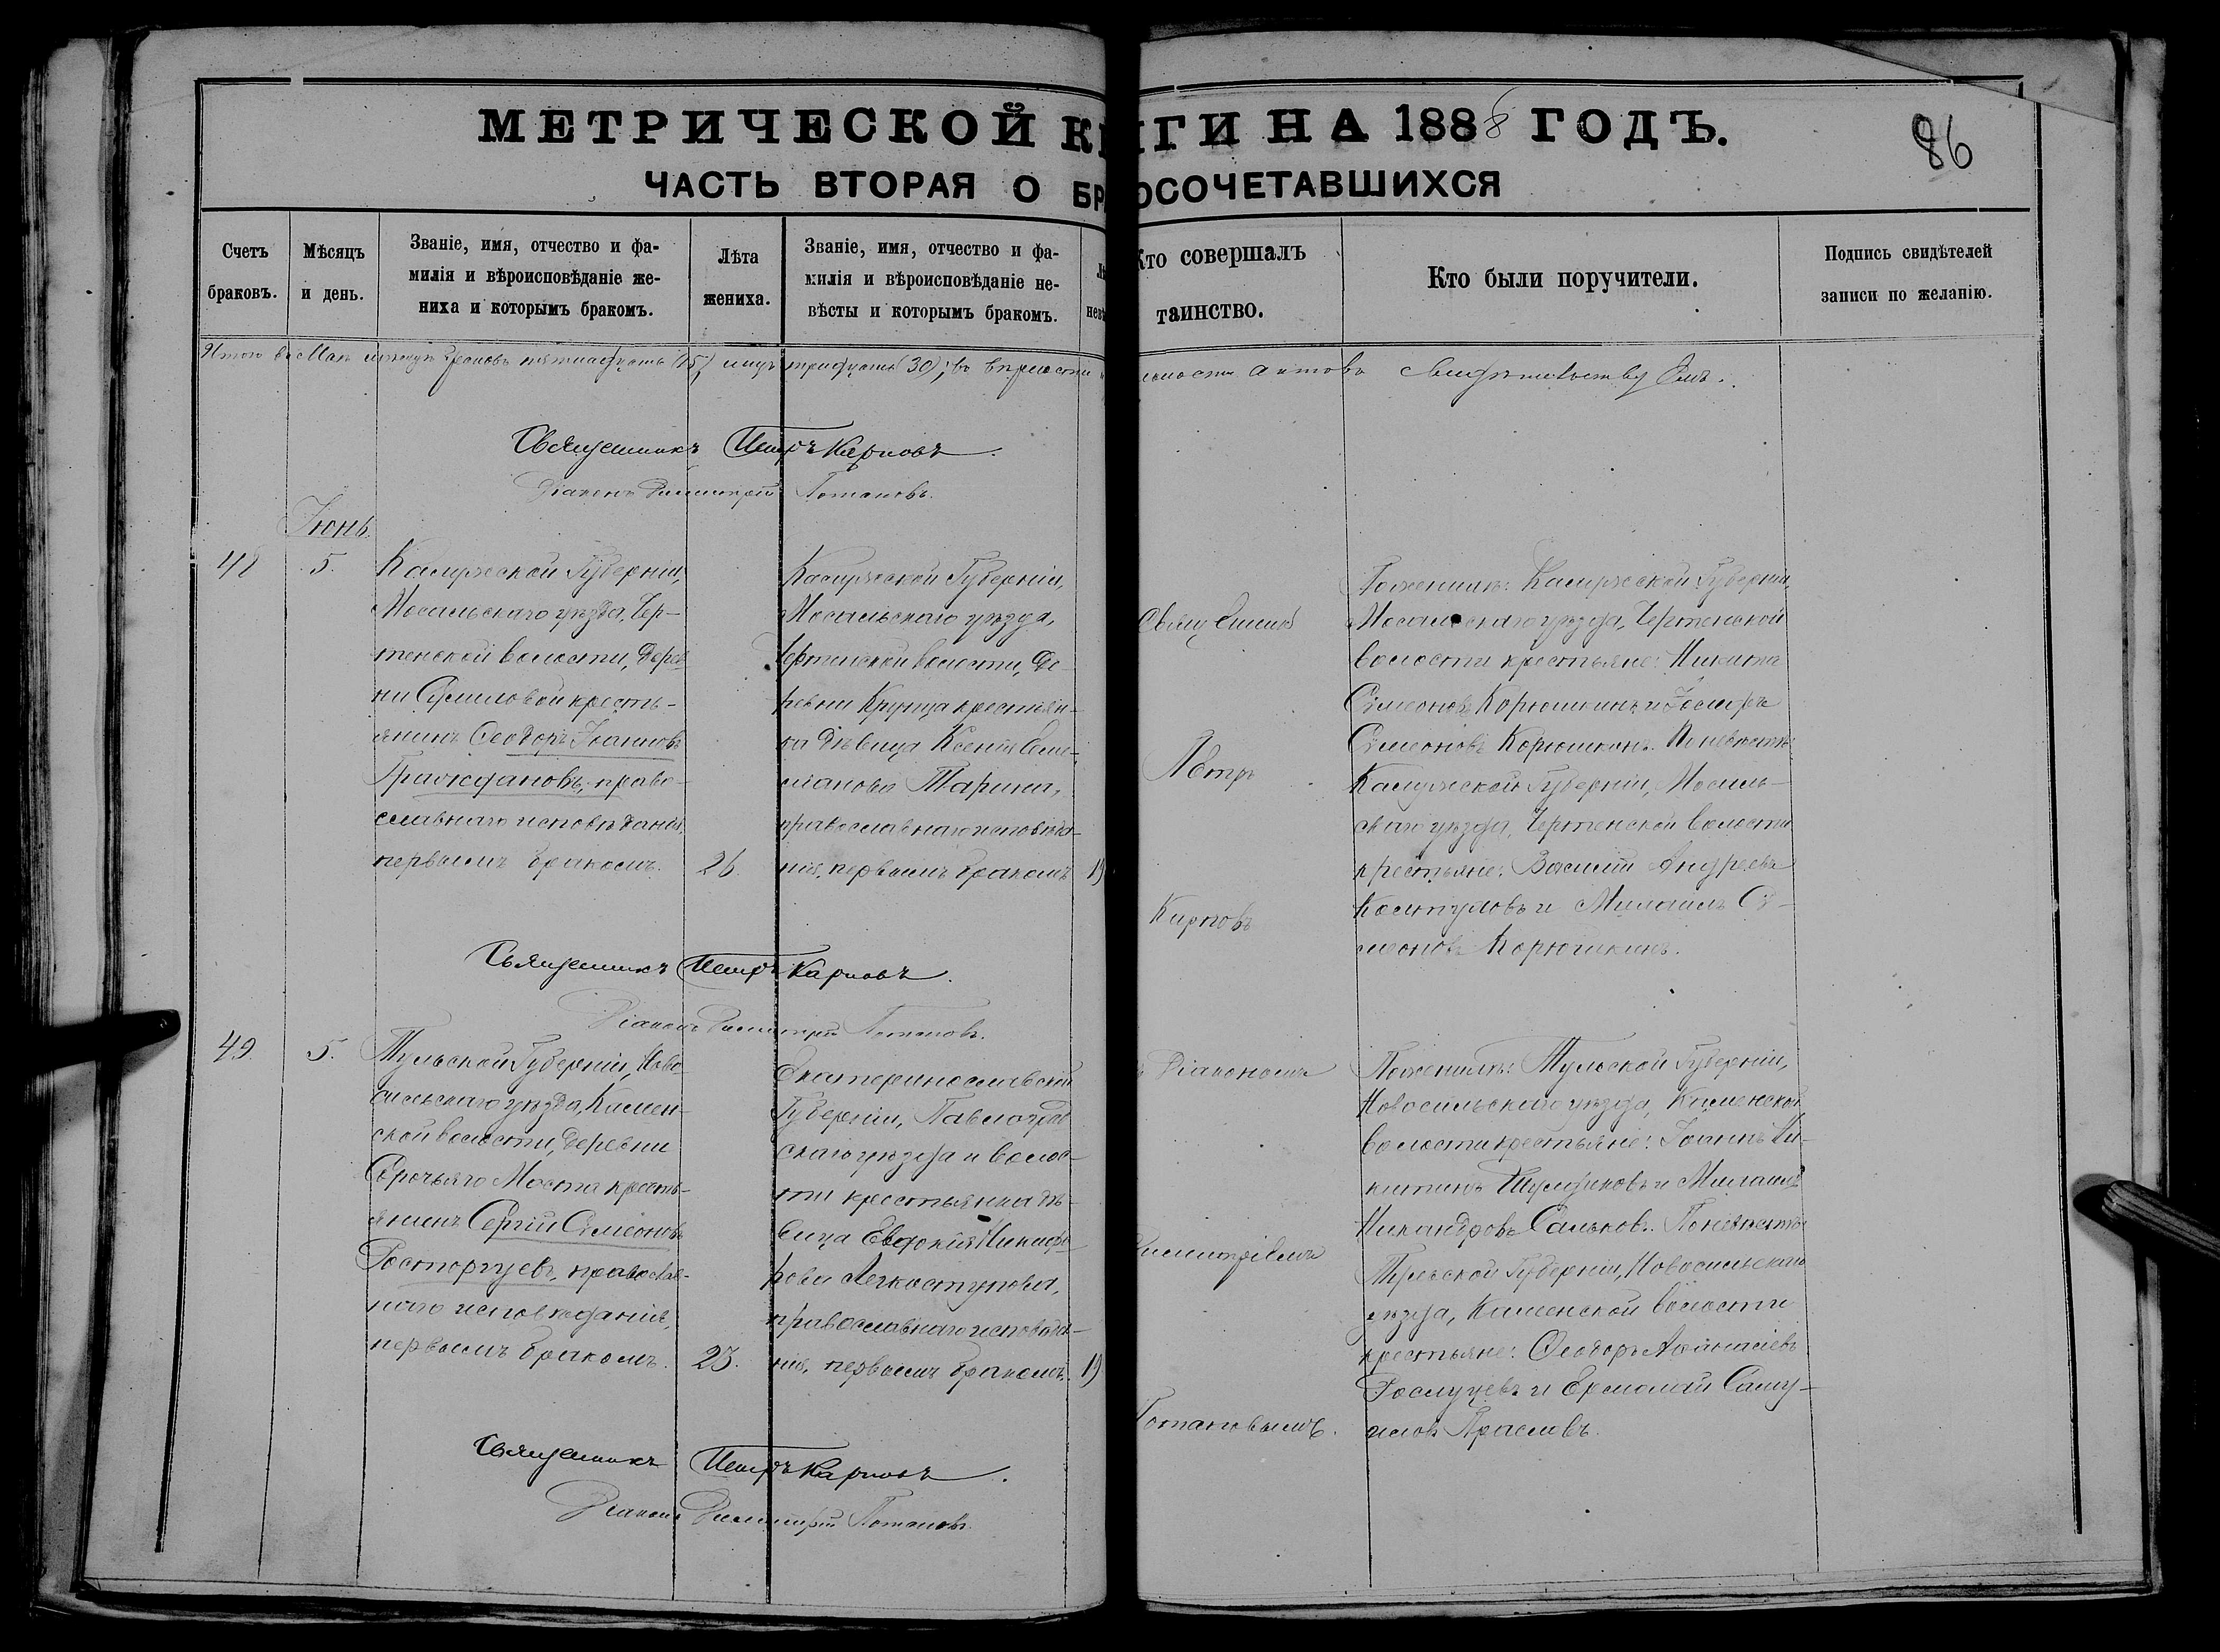 МЕТРИЧЕСКОЙ К
ГИ НА 1888 ГОДЪ.
86
ЧАСТЬ ВТОРАЯ О БР
ОСОЧЕТАВШИХСЯ
Счетъ
браковъ.
Мѣсяцъ
и день.
Званіе, имя, отчество и фа-
милія и вѣроисповѣданіе же-
ниха и которымъ бракомъ.
Лѣта
жениха.
Званіе, имя, отчество и фа-
милія и вѣроисповѣданіе не-
вѣсты и которымъ бракомъ.
Кто совершалъ
таинство.
Кто были поручители.
Подпись свидѣтелей
записи по желанію.
Итого въ Маѣ мѣсяцѣ браковъ пятнадцать (15) лицъ тридцать (30); въ
актовъ свидѣтельствуемъ.
Священникъ Петръ Карповъ.
Діаконъ Димитрій Потаповъ.
Іюнь.
48
5.
Калужской Губерніи,
Мосальскаго уѣзда, Чер-
тенской волости, дерев
ни крестъ-
янинъ Ѳеодоръ Іоанновъ
Граждановъ, право-
славнаго исповѣданія,
первымъ бракомъ.
26.
Калужской Губерніи,
Мосальскаго уѣзда,
Чертенской волости, де-
ревни Крутца крестьян-
ка дѣвица Ксенія
Тарина,
православнаго исповѣда-
нія, первымъ бракомъ
19
Священник
Петръ
Карповъ
По женихѣ: Калужской Губерніи,
Мосальскаго уѣзда, Чертенской
волости крестьяне: Никита
Симеоновъ Корюшкинъ и Іосифъ
Симеоновъ Корюшкинъ. По невѣстѣ:
Калужской Губерніи, Мосаль-
скаго уѣзда, Чертенской волости
крестьяне: Василій Андреевъ
и Михаилъ Си-
меоновъ Корюшкинъ.
Священникъ Петръ Карповъ.
Діаконъ Димитрій Потаповъ.
49.
5.
Тульской Губерніи, Ново-
сильскаго уѣзда, Камен-
ской волости, деревни
Сорочьяго Моста кресть-
янинъ Сергій Симеоновъ
Расторгуевъ, православ-
наго исповѣданія,
первымъ бракомъ.
23.
Екатеринославской
Губерніи, Павлоград
скаго уѣзда и волос-
ти крестьянка дѣ-
вица Евдокія Никифо
рова Легкоступова,
православнаго исповѣда-
нія, первымъ бракомъ.
19
Діакономъ
Димитріемъ
Потаповымъ.
По женихѣ: Тульской Губерніи,
Новосильскаго уѣзда, Каменской
волости крестьяне: Іоаннъ Ни-
китинъ и Михаилъ
Никандровъ Сальковъ. По невѣстѣ:
Тульской Губерніи, Новосильскаго
уѣзда, Каменской волости
крестьяне: Ѳеодоръ Аѳанасіевъ
и Ермолай Саму-
иловъ
Священникъ Петръ Карповъ.
Діаконъ Димитрій Потаповъ.